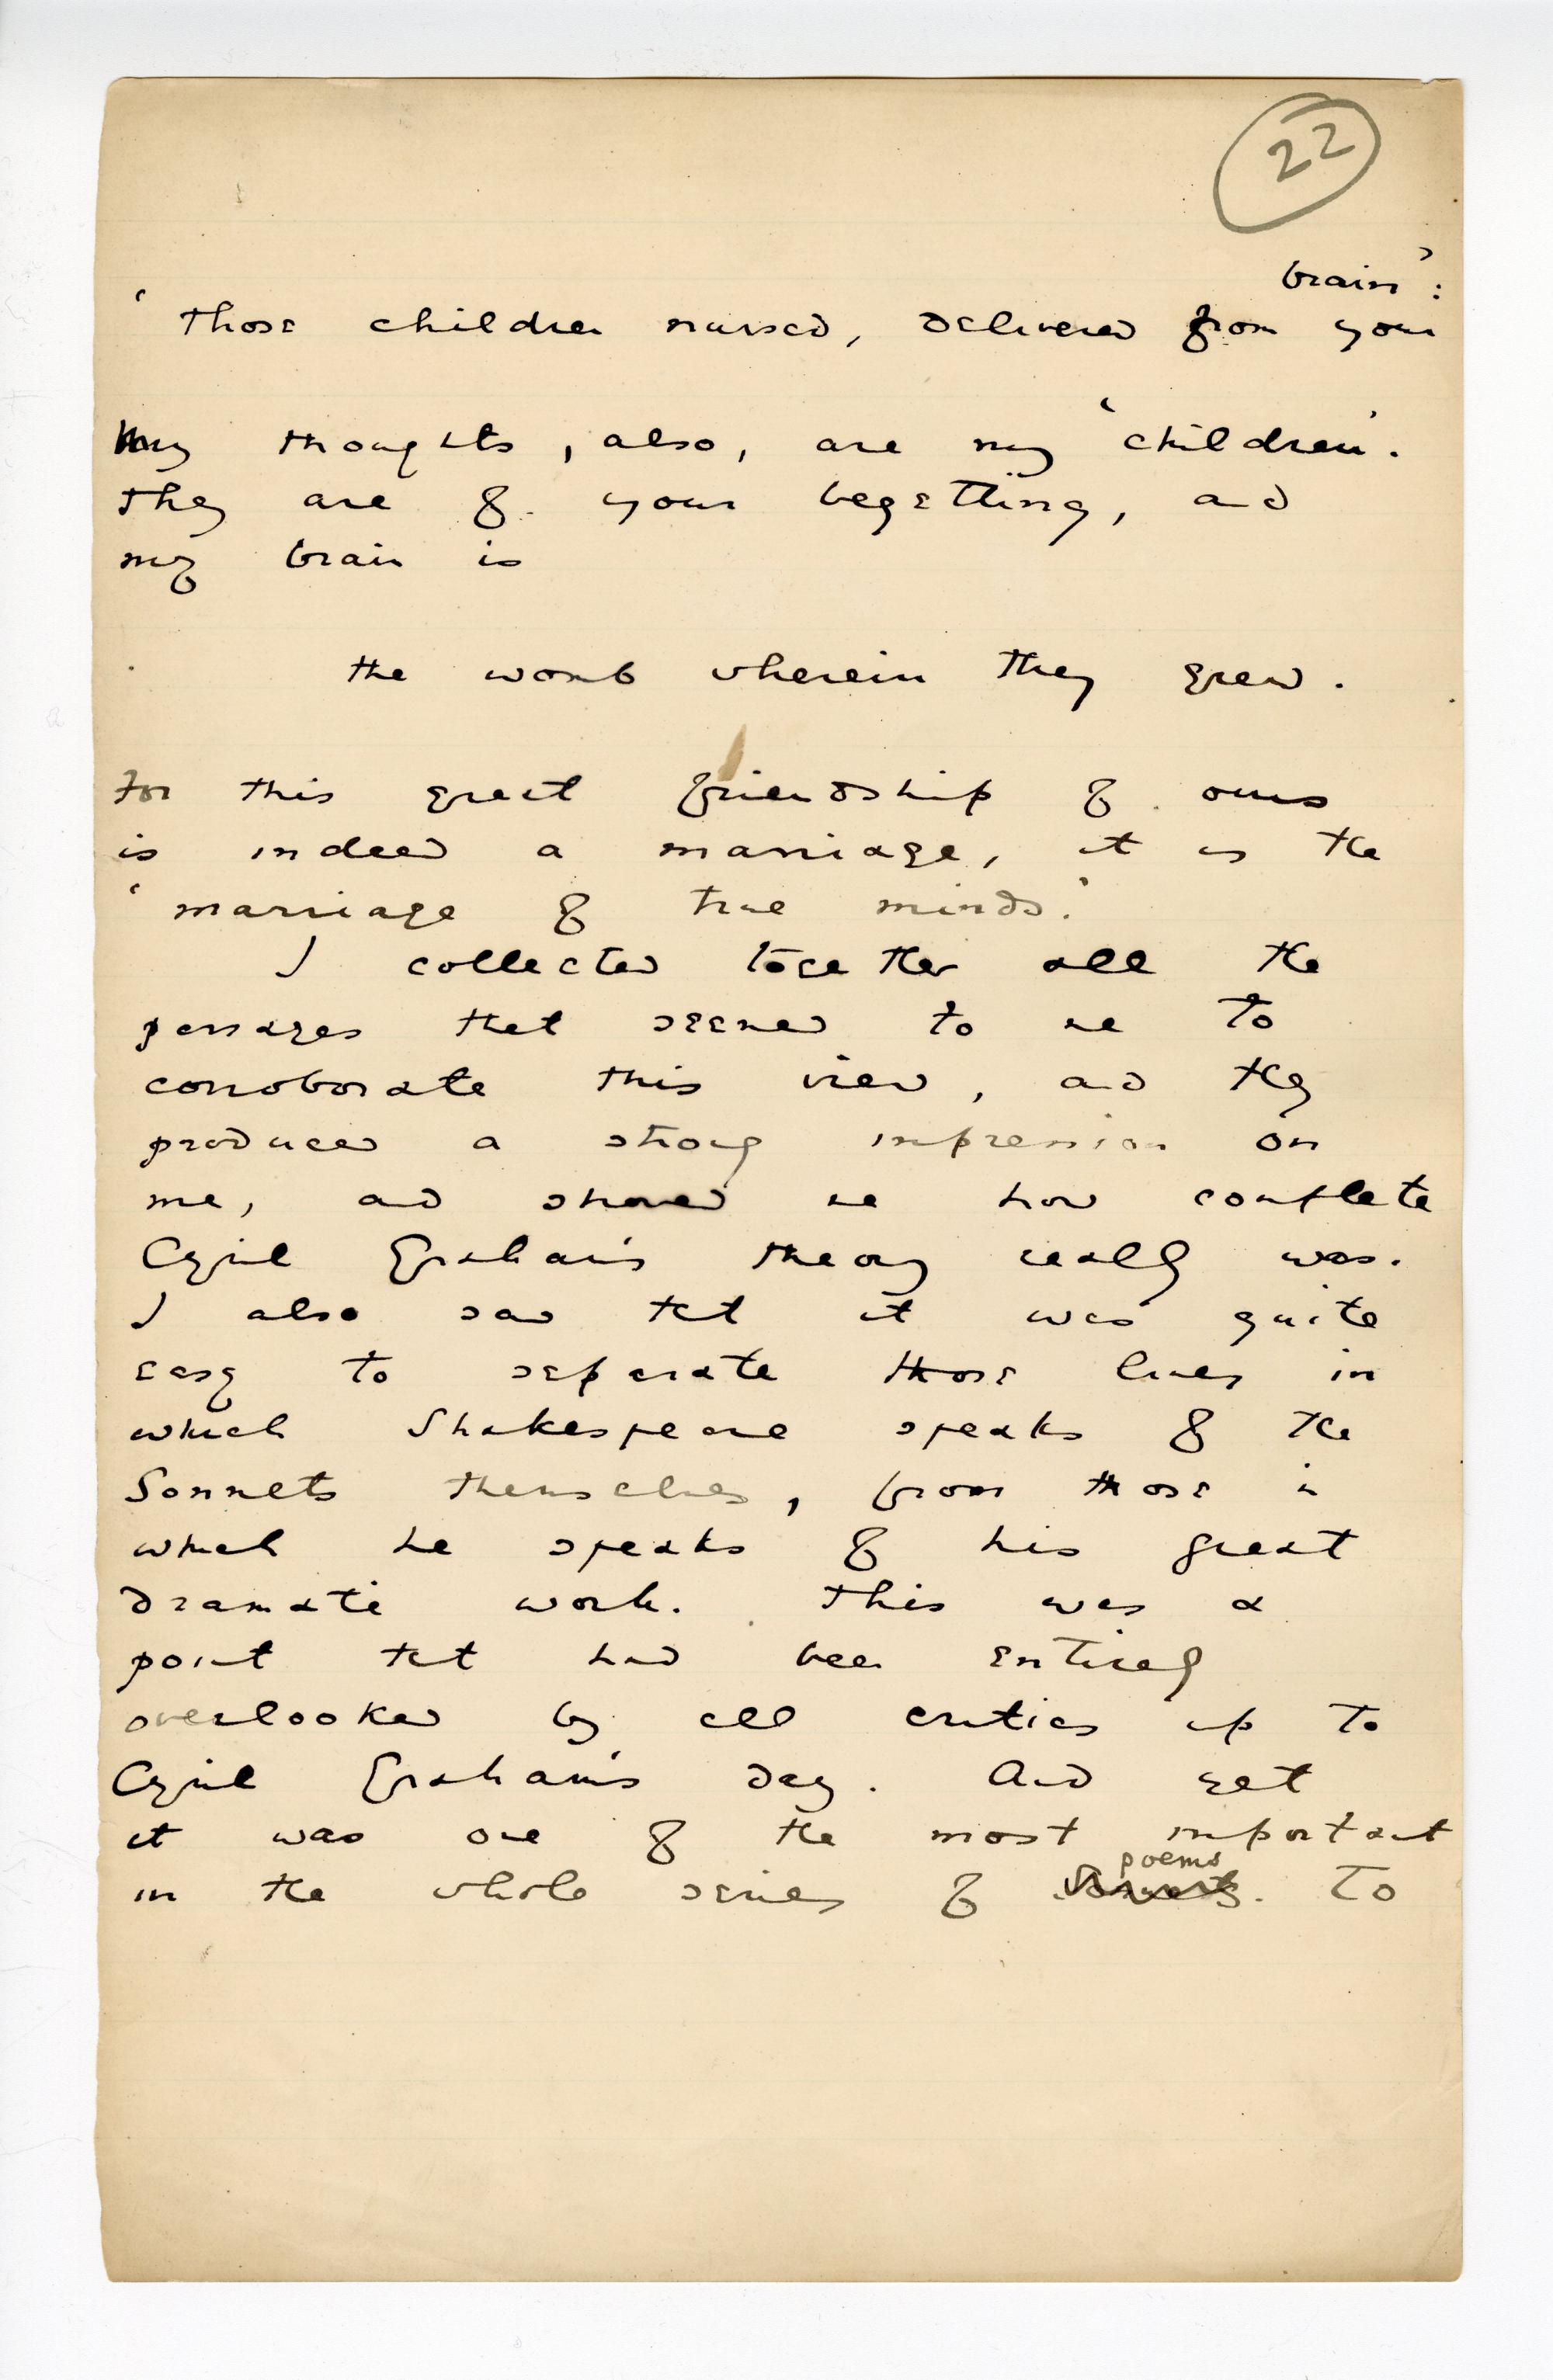 22
brain':
'Those children nursed, delivered from your
My thoughts, also, are my 'children'.
They are of your begetting, and
my brain is
the womb wherein they grew.
For this great friendship of ours
is indeed a marriage, it is the
'marriage of true minds.'
I collected together all the
passages that seemed to me to
corroborate this view, and they
produced a strong impression on
me, and showed me how complete
Cyril Graham's theory really was.
I also saw that it was quite
easy to separate those lines in
which Shakespeare speaks of the
Sonnets themselves, from those in
which he speaks of his great
dramatic work. This was a
point that had been entirely
overlooked by all critics up to
Cyril Graham's day. And yet
it was one of the most important
poems
in the whole series of Sonnets. To